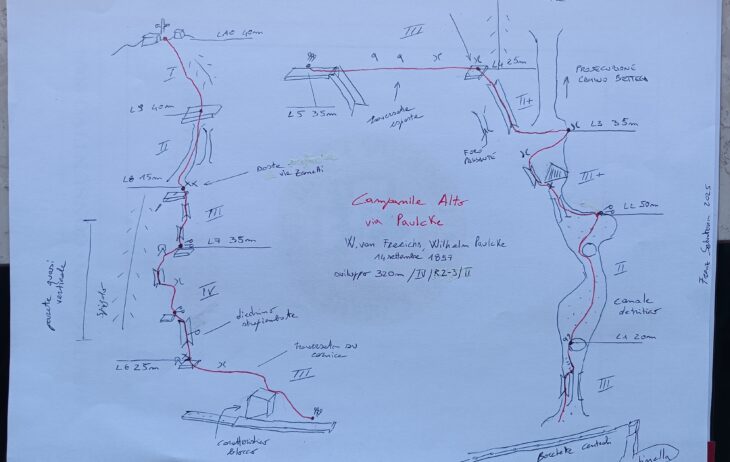 LAO 40m
I
L9 40m
II
L8 15m
XX
SOSTE
via Zanetti
III
L7 35m
IV
parete quasi
verticale
spigolo
diedrino
strapiombante
L6 25m
traversata su
cornice
III
caratteristico
blocco
III
L5 35m
traversata
esposta
L4 25m
II+
FORO
PASSANTE
PROSECUZIONE
CAMINO BETTEGA
L3 35m
III+
L2 50m
II
canale
detritico
L1 20m
III
Bocchette Centrali
Campanile Alto
via Paulcke
W. von Frerichs, Wilhelm Paulcke
14 settembre 1897
sviluppo 320m /IV/R2-3/II
2025